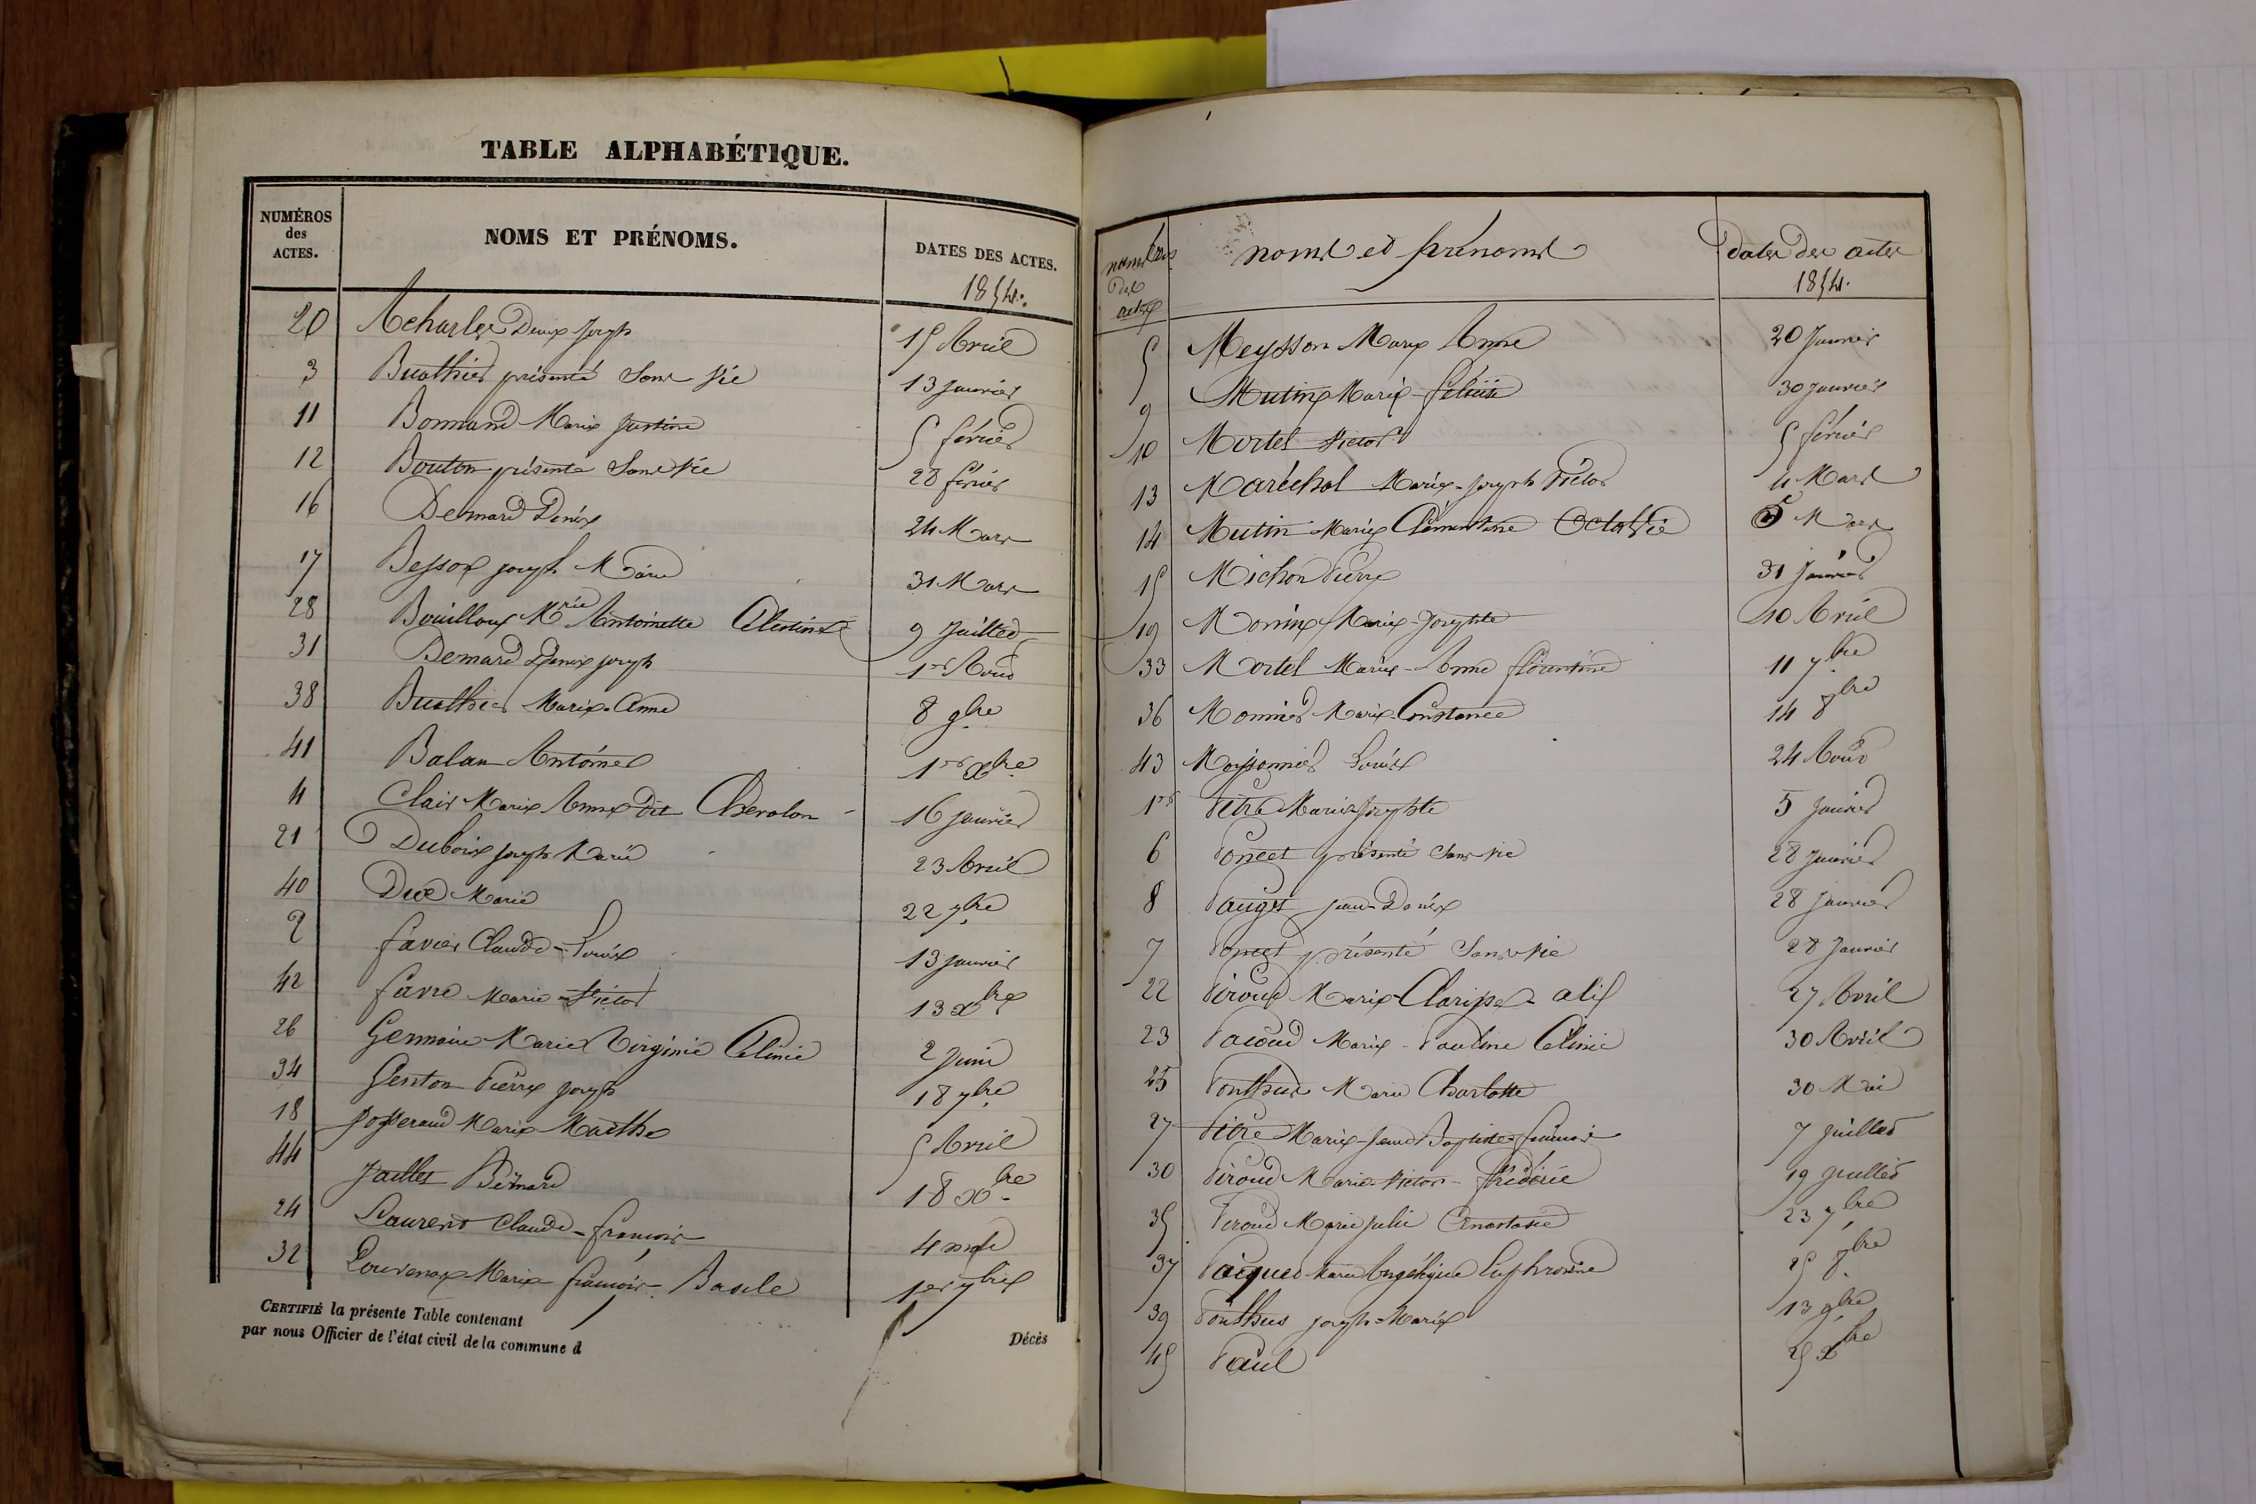 TABLE ALPHABÉTIQUE.
NUMÉROS des ACTES. NOMS ET PRÉNOMS. DATES DES ACTES.
1854.
20 Acharles Denix Joseph 15 Avril
3 Buathier présenté Sans vie 13 janvier
11 Bonnand Marie Justine 5 février
12 Bouton présenté Sans vie 28 février
16 Bernard Denix 24 Mars
17 Besson joseph Marie 31 Mars
28 Bouilloux Mrie Antoinette Célestine 9 Juillet
31 Bernard Denix joseph 1er Aout
38 Buathier Marie-Anne 8 9bre
41 Balan Antoine 1er Xbre
4 Clair Marie Anne dit Chevalon 16 janvier
21 Dubois joseph Marie 23 Avril
40 Duc Marie 22 9bre
2 favier Claude-Louis 13 janvier
42 favre Marie-Victor 13 Xbre
26 Germain Marie Virginie Célinie 2 Juin
34 Genton Pierre joseph 18 7bre
18 josserand Marie Marthe 5 Avril
44 Jaillet Bernard 18 Xbre
24 Laurent Claude-françois 4 mai
32 Louvenox Marie françois-Basile 1er 7bre
CERTIFIÉ la présente Table contenant Décès
par nous Officier de l'état civil de la commune d
numéros des actes noms et prénoms dates des actes
1854.
5 Meysson Marie Anne 20 Janvier
9 Mutin Marie-félicie 30 janvier
10 Mortel Victor 5 février
13 Maréchal Marie-joseph Victor 4 Mars
14 Mutin Marie Clémentine Octavie 5 Mars
15 Michon Pierre 31 janvier
19 Monin Marie-Josephte 10 Avril
33 Mortel Marie-Anne florentine 11 7bre
36 Monnier Marie-Constance 14 8bre
43 Moissonnier Louis 24 Aout
1er Pitre Marie Josephte 5 janvier
6 Poncet présenté Sans vie 28 janvier
8 Pauget jean-Denix 28 janvier
7 Poncet présenté Sans vie 28 janvier
22 Piroud Marie-Clarisse-alix 27 Avril
23 Pacoud Marie-Pauline Célinie 30 Avril
25 Ponthus Marie Charlotte 30 Mai
27 Pitre Marie-Jean Baptiste-françois 7 juillet
30 Piroud Marie-Victor-frédéric 19 juillet
35 Piroud Marie julie Anastasie 23 7bre
37 Paquet Marie Angélique Euphrosine 25 8bre
39 Ponthus joseph-Marie 13 9bre
45 Paul 25 Xbre